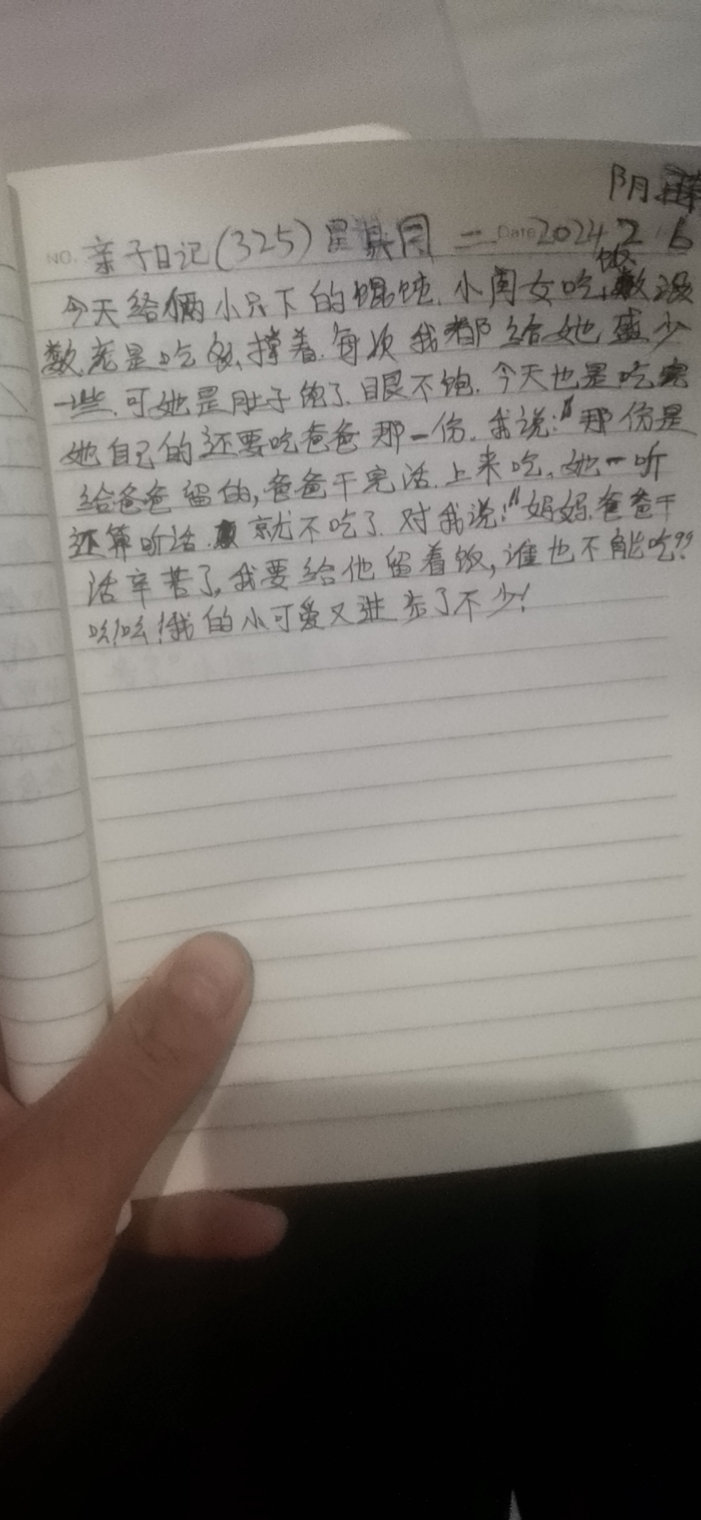 阴
NO. 亲子日记(325)星期二 Date 2024 2 6
今天给俩小只下的馄饨.小闺女吃饭没
数,老是吃撑着.每次我都给她盛少
一些.可她是肚子饱了.眼不饱.今天也是吃完
她自己的还要吃爸爸那一份.我说:"那份是
给爸爸留的,爸爸干完活.上来吃.她一听
还算听话.就不吃了.对我说:"妈妈.爸爸干
活辛苦了,我要给他留着饭,谁也不能吃"
哈哈!我的小可爱又进步了不少!